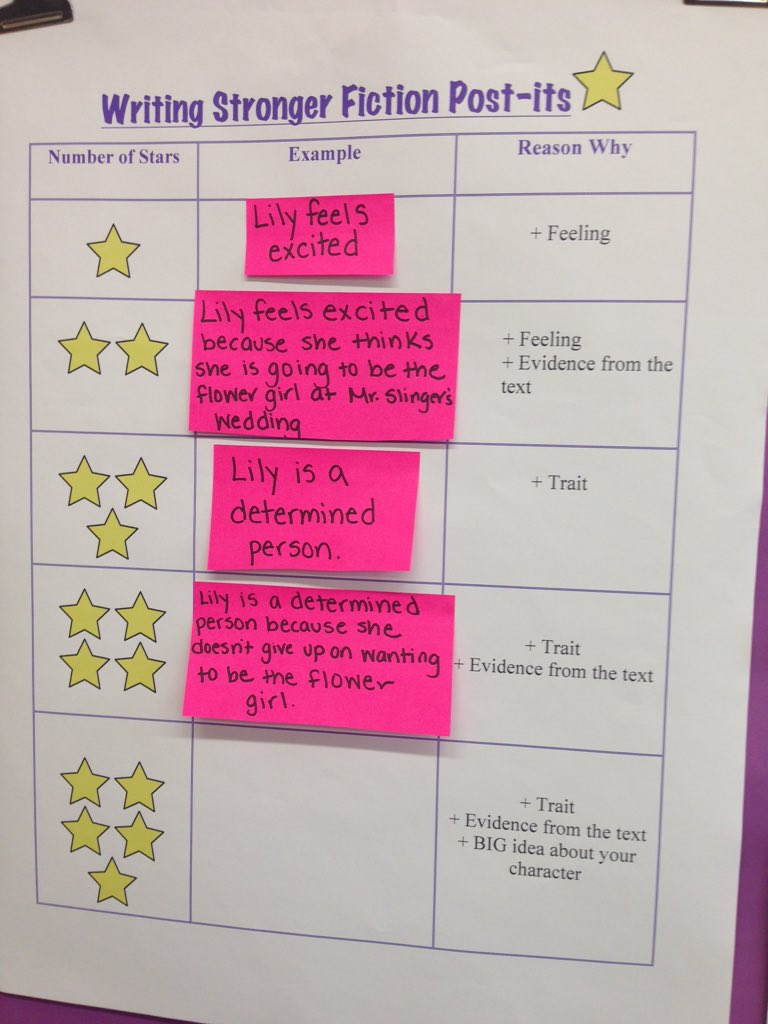 Writing Stronger Fiction Post-its
Number of Stars
Example
Reason Why
Lily feels
excited
+ Feeling
Lily feels excited
because she thinks
she is going to be the
flower girl at Mr. Slinger's
wedding
+ Feeling
+ Evidence from the
text
Lily is a
determined
person.
+ Trait
Lily is a determined
person because she
doesn't give up on wanting
to be the flower
girl.
+ Trait
+ Evidence from the text
+ Trait
+ Evidence from the text
+ BIG idea about your
character